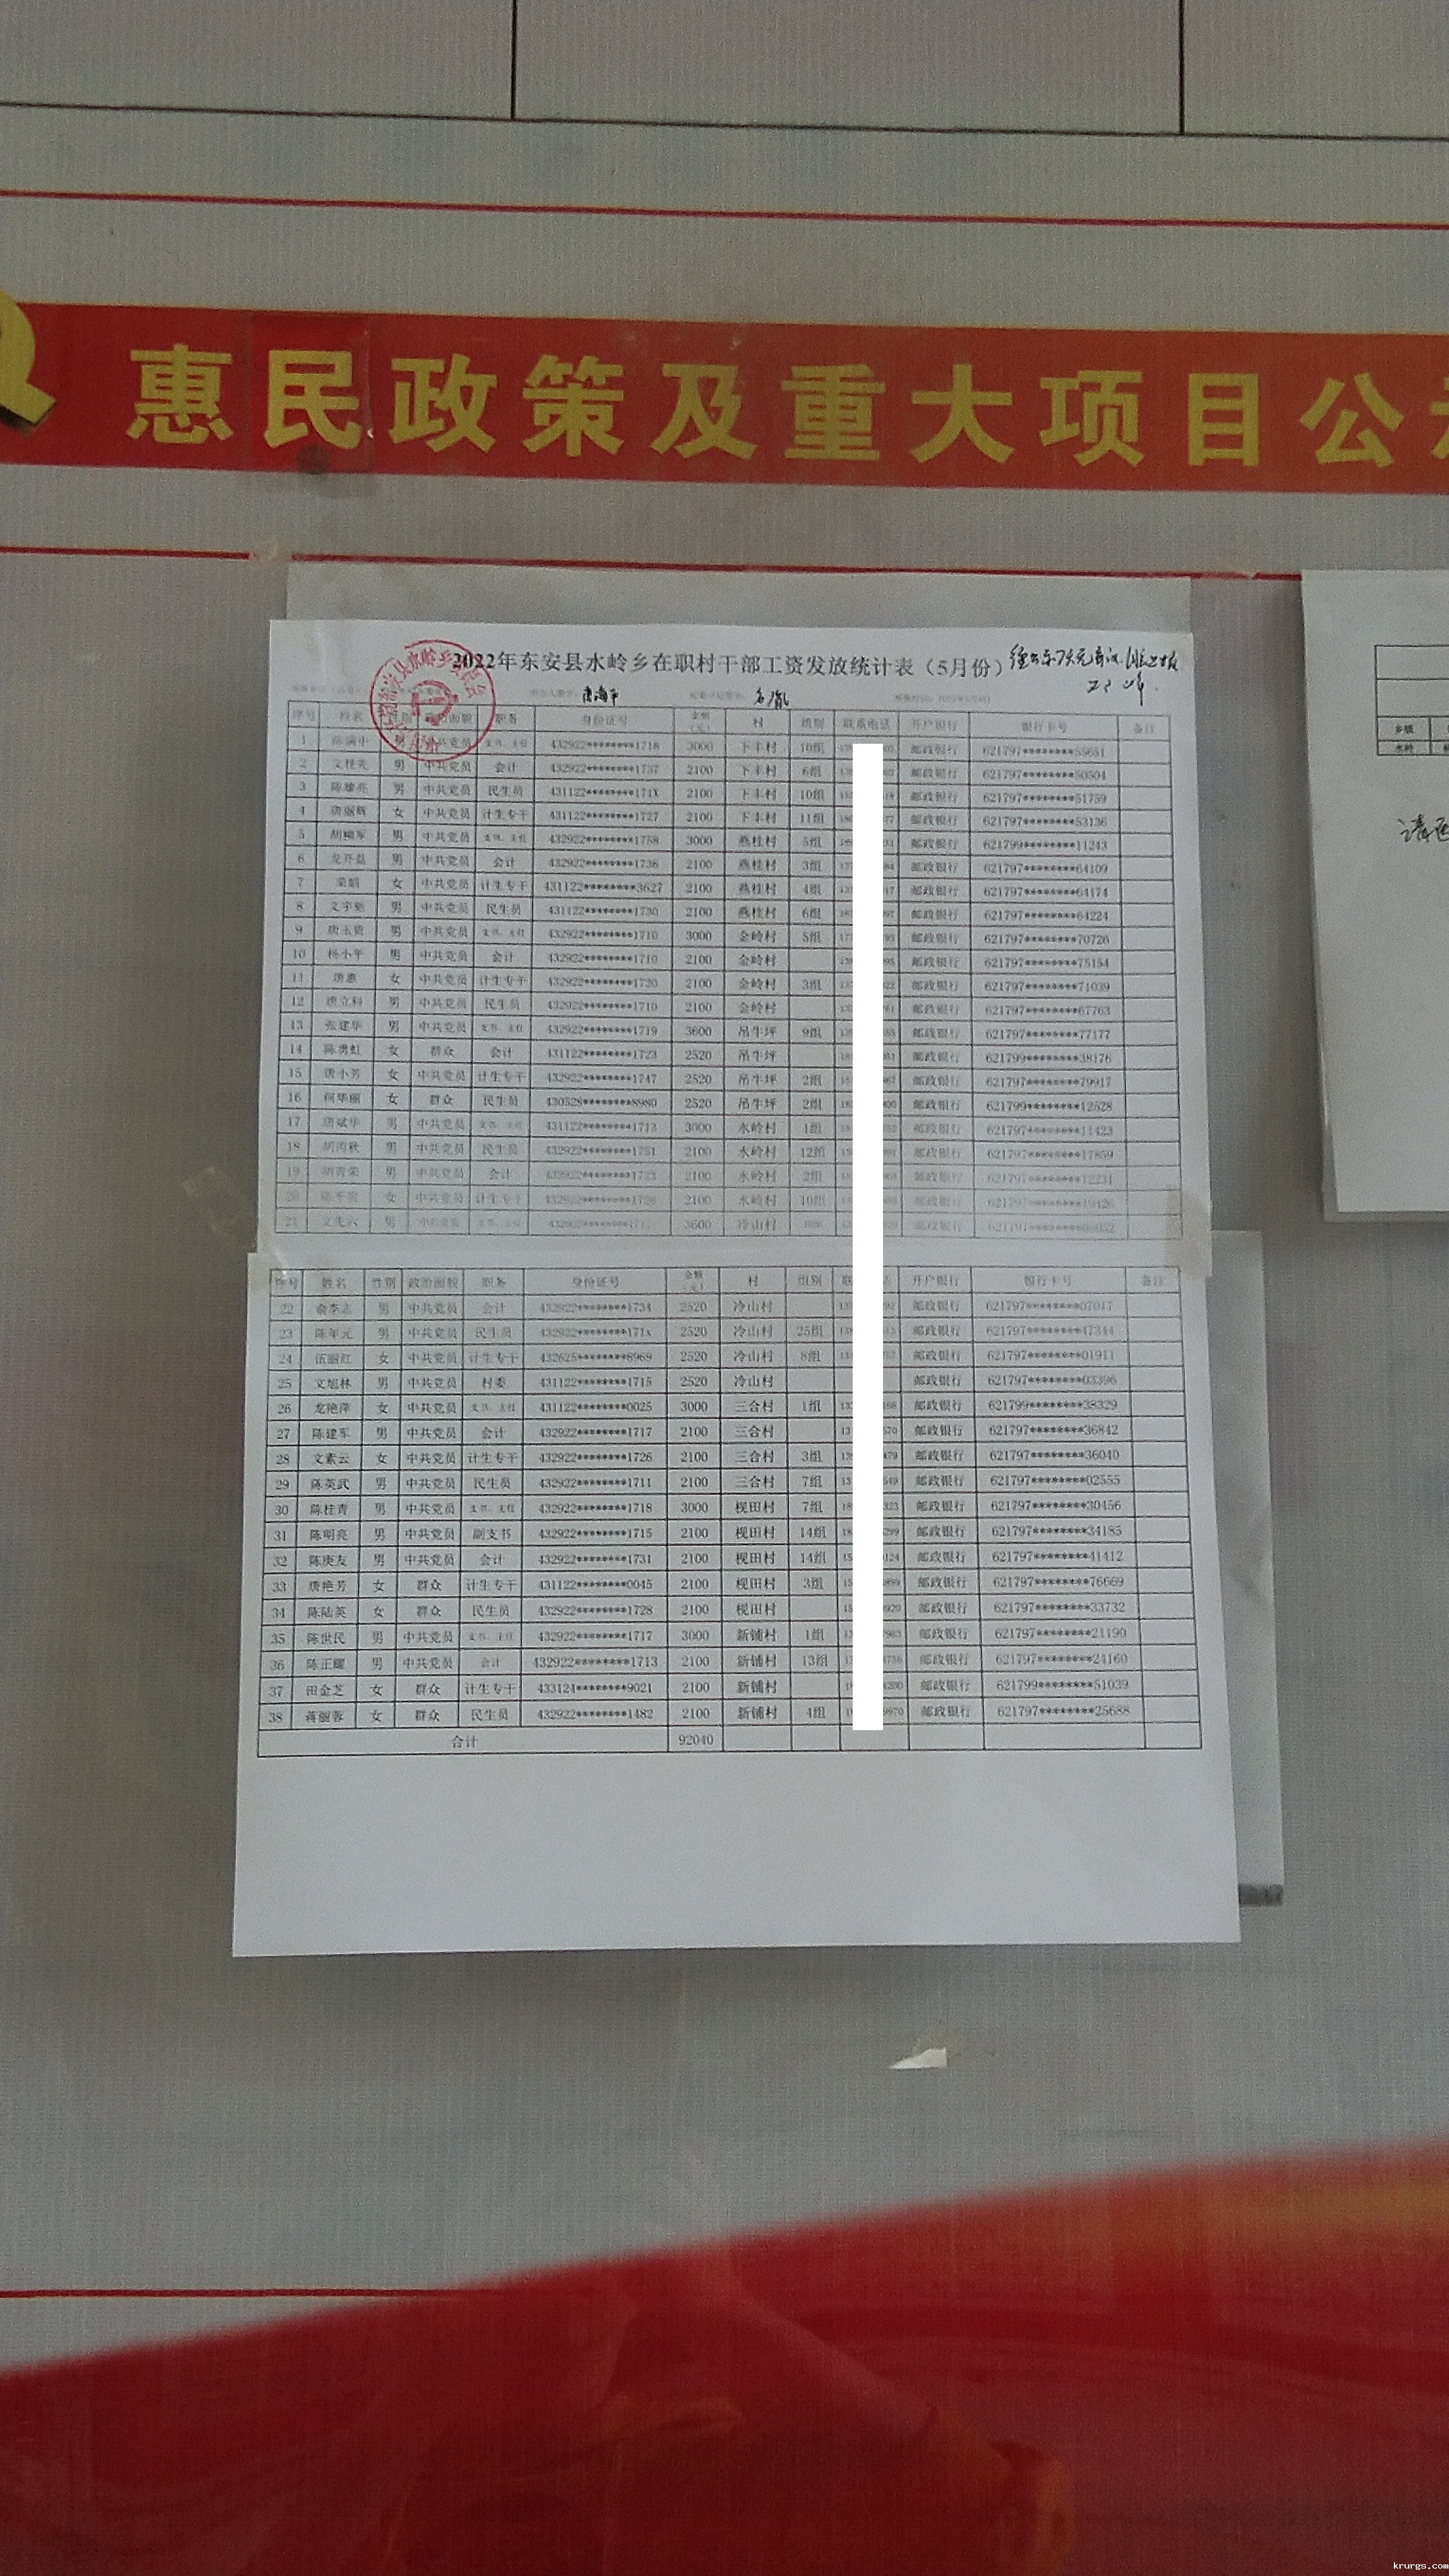 惠民政策及重大项目公
2022年东安县水岭乡在职村干部工资发放统计表（5月份）
序号 姓名 职务 身份证号 金额（元） 村 组别 联系电话 开户银行 银行卡号 备注
1 男 中共党员 432922********1718 3000 下丰村 10组 邮政银行 621797********55651
2 男 中共党员 会计 432922********1737 2100 下丰村 6组 邮政银行 621797********50504
3 男 中共党员 民生员 431122********171X 2100 下丰村 10组 邮政银行 621797********51759
4 唐丽辉 女 中共党员 计生专干 431122********1727 2100 下丰村 11组 邮政银行 621797********53136
5 胡柳军 男 中共党员 支书、主任 432922********1758 3000 燕桂村 5组 邮政银行 621799********11243
6 龙开磊 男 中共党员 会计 432922********1736 2100 燕桂村 3组 邮政银行 621797********64109
7 女 中共党员 计生专干 431122********3627 2100 燕桂村 4组 邮政银行 621797********64174
8 男 中共党员 民生员 431122********1730 2100 燕桂村 6组 邮政银行 621797********64224
9 男 中共党员 支书、主任 432922********1710 3000 金岭村 5组 邮政银行 621797********70726
10 杨小平 男 中共党员 会计 432922********1710 2100 金岭村 邮政银行 621797********75154
11 唐惠 女 中共党员 计生专干 432922********1720 2100 金岭村 3组 邮政银行 621797********71039
12 唐立科 男 中共党员 民生员 432922********1710 2100 金岭村 邮政银行 621797********67763
13 张建华 男 中共党员 支书、主任 432922********1719 3600 吊牛坪 9组 邮政银行 621797********77177
14 陈勇虹 女 群众 会计 431122********1723 2520 吊牛坪 邮政银行 621799********38176
15 唐小芳 女 中共党员 计生专干 432922********1747 2520 吊牛坪 2组 邮政银行 621797********79917
16 何华丽 女 群众 民生员 430528********8980 2520 吊牛坪 2组 邮政银行 621799********12528
17 唐斌华 男 中共党员 支书、主任 431122********1713 3000 水岭村 1组 邮政银行 621797********11423
18 男 中共党员 民生员 432922********1751 2100 水岭村 12组 邮政银行 621797********17859
19 胡青荣 男 中共党员 会计 432922********1733 2100 水岭村 2组 邮政银行 621797********12231
20 女 中共党员 计生专干 432922********1726 2100 水岭村 10组 邮政银行
21 男 中共党员 3600 冷山村 邮政银行
序号 姓名 性别 政治面貌 职务 身份证号 金额（元） 村 组别 开户银行 银行卡号 备注
22 男 中共党员 会计 432922********1734 2520 冷山村 邮政银行 621797********07017
23 陈年元 男 中共党员 民生员 432922********171x 2520 冷山村 25组 邮政银行 621797********47344
24 伍丽红 女 中共党员 计生专干 432625********8969 2520 冷山村 8组 邮政银行 621797********01911
25 文旭林 男 中共党员 村委 431122********1715 2520 冷山村 邮政银行 621797********03396
26 龙艳萍 女 中共党员 支书、主任 431122********0025 3000 三合村 1组 邮政银行 621799********38329
27 陈建军 男 中共党员 会计 432922********1717 2100 三合村 邮政银行 621797********36842
28 文素云 女 中共党员 计生专干 432922********1726 2100 三合村 3组 邮政银行 621797********36040
29 陈英武 男 中共党员 民生员 432922********1711 2100 三合村 7组 邮政银行 621797********02555
30 陈桂青 男 中共党员 支书、主任 432922********1718 3000 枧田村 7组 邮政银行 621797********30456
31 陈明亮 男 中共党员 副支书 432922********1715 2100 枧田村 14组 邮政银行 621797********34185
32 陈庚友 男 中共党员 会计 432922********1731 2100 枧田村 14组 邮政银行 621797********41412
33 唐艳芳 女 群众 计生专干 431122********0045 2100 枧田村 3组 邮政银行 621797********76669
34 陈陆英 女 群众 民生员 432922********1728 2100 枧田村 邮政银行 621797********33732
35 陈世民 男 中共党员 支书、主任 432922********1717 3000 新铺村 1组 邮政银行 621797********21190
36 陈正耀 男 中共党员 会计 432922********1713 2100 新铺村 13组 邮政银行 621797********24160
37 田金芝 女 群众 计生专干 433124********9021 2100 新铺村 邮政银行 621799********51039
38 蒋丽蓉 女 群众 民生员 432922********1482 2100 新铺村 4组 邮政银行 621797********25688
合计 92040
乡镇
水岭
krurgs.com